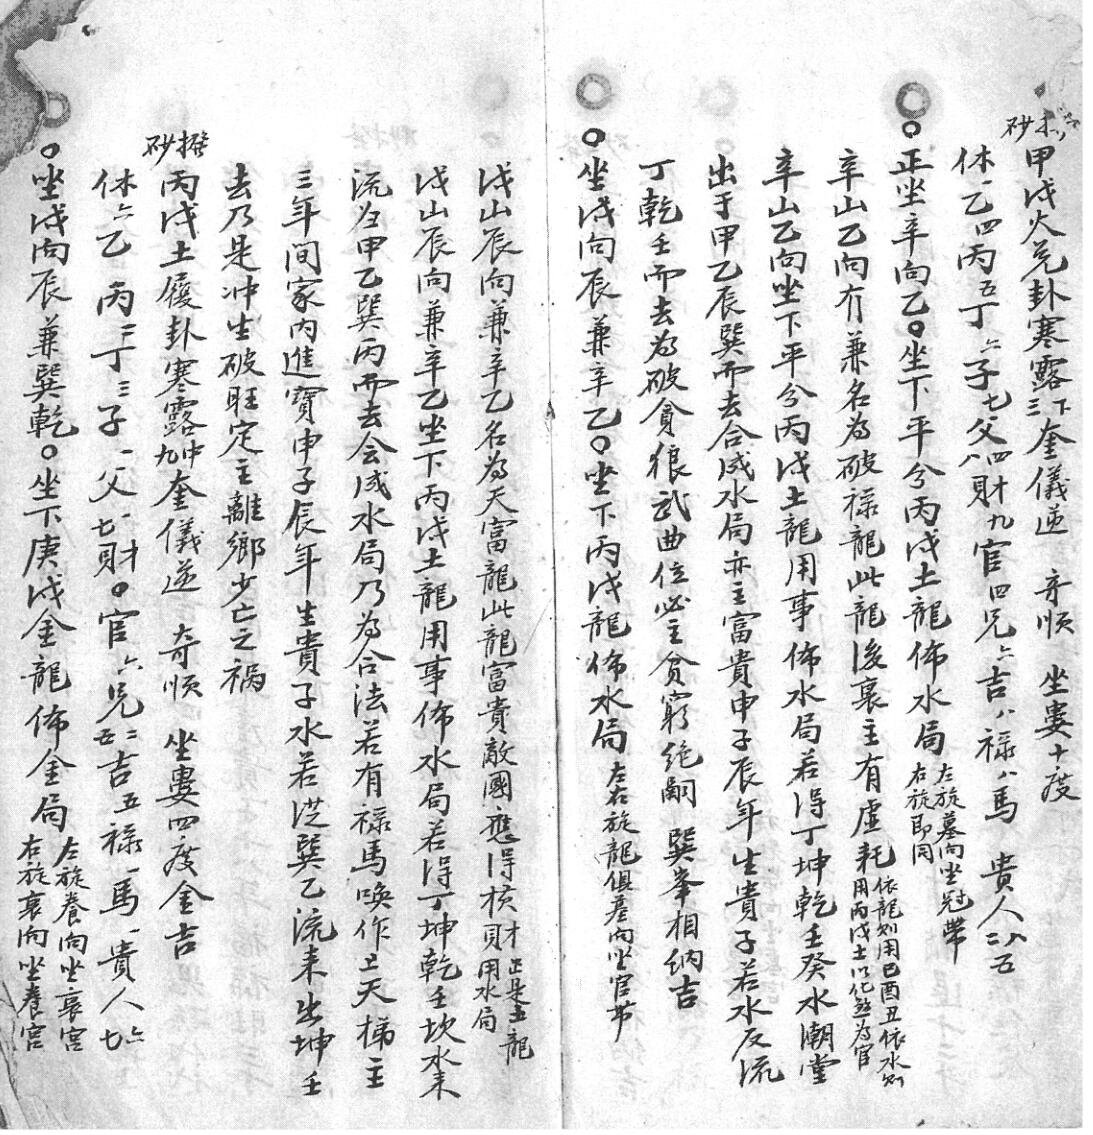 撥砂
甲戌火兌卦寒露下三奎儀逆 奇順 坐婁十度
休一乙四丙五丁六子七父八四財九官四兄六吉八祿八馬 貴人二八五
正坐辛向乙○坐下平兮丙戌土龍佈水局 左旋墓向坐冠帶 右旋即同
辛山乙向有兼名為破祿龍此龍後裏主有虛耗 依龍則用巳酉丑依水則用丙戌土以化煞為官
辛山乙向坐下平兮丙戌土龍用事佈水局若得丁坤乾壬癸水潮堂
出于甲乙辰巽而去合成水局亦主富貴申子辰年生貴子若水反流
丁乾壬而去為破貪狼武曲位必主貧窮絕嗣 巽峯相納吉
○坐戌向辰兼辛乙○坐下丙戌龍佈水局 左右旋龍俱墓向坐官帶
戌山辰向兼辛乙名為天富龍此龍富貴敵國應得橫財 正是土龍用水局
戌山辰向兼辛乙坐下丙戌土龍用事佈水局若得丁坤乾壬坎水來
流歸甲乙巽丙而去会成水局乃為合法若有祿馬喚作上天梯主
三年間家內進寶申子辰年生貴子水若從巽乙流来出坤壬
去乃是冲生破旺定主離鄉少亡之禍
撥砂
丙戌土履卦寒露中九奎儀逆 奇順 坐婁四度金吉
休六乙 丙二丁三子一父一七財○官六兄二五吉五祿一馬一貴人六七
○坐戌向辰兼巽乾○坐下庚戌金龍佈金局 左旋養向坐衰宮 右旋衰向坐養宮